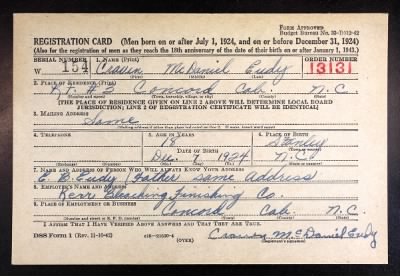 Form Approved
Budget Bureau No. 33-R013-42
REGISTRATION CARD (Men born on or after July 1, 1924, and on or before December 31, 1924)
(Also for the registration of men as they reach the 18th anniversary of the date of their birth on or after January 1, 1943.)
SERIAL NUMBER 1. NAME (Print) ORDER NUMBER
W 154 Craven McDaniel Eudy 13131
(First) (Middle) (Last)
2. PLACE OF RESIDENCE (Print)
Rt. #2 Concord Cab. N.C.
(Number and street) (Town, township, village, or city) (County) (State)
[THE PLACE OF RESIDENCE GIVEN ON LINE 2 ABOVE WILL DETERMINE LOCAL BOARD
JURISDICTION; LINE 2 OF REGISTRATION CERTIFICATE WILL BE IDENTICAL]
3. MAILING ADDRESS
Same
4. TELEPHONE 5. AGE IN YEARS 6. PLACE OF BIRTH
18 Stanley
DATE OF BIRTH
Dec. 7 1924 N.C.
(Mo.) (Day) (Yr.)
7. NAME AND ADDRESS OF PERSON WHO WILL ALWAYS KNOW YOUR ADDRESS
E. B. Eudy (Father) same address
8. EMPLOYER'S NAME AND ADDRESS
Kerr Bleaching Finishing Co.
9. PLACE OF EMPLOYMENT OR BUSINESS
Concord Cab. N.C.
(Number and street or R. F. D. number) (Town) (County) (State)
I AFFIRM THAT I HAVE VERIFIED ABOVE ANSWERS AND THAT THEY ARE TRUE.
DSS Form 1 (Rev. 11-16-42) (OVER) Craven McDaniel Eudy
(Registrant's signature)